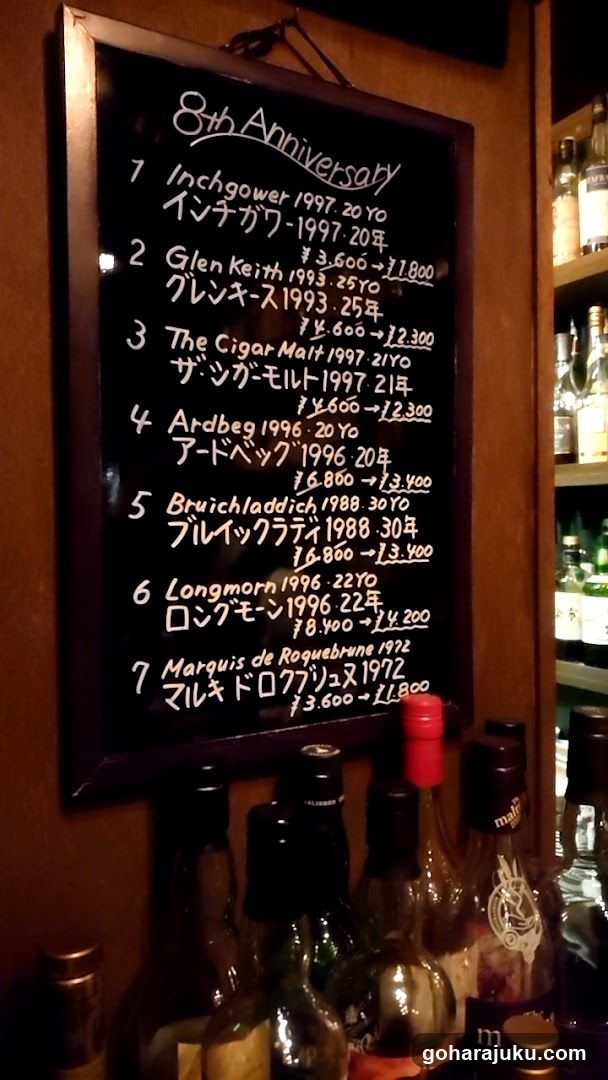 8th Anniversary
1 Inchgower 1997.20YO
インチガワー1997.20年
¥3.600→¥1.800
2 Glen Keith 1993.25YO
グレンキース1993.25年
¥4.600→¥2.300
3 The Cigar Malt 1997.21YO
ザ・シガーモルト1997.21年
¥4600→¥2.300
4 Ardbeg 1996.20YO
アードベッグ1996.20年
¥6.800→¥3.400
5 Bruichladdich 1988.30YO
ブルイックラディ1988.30年
¥6.800→¥3.400
6 Longmorn 1996.22YO
ロングモーン1996.22年
¥8.400→¥4.200
7 Marquis de Roquebrune 1972
マルキ ド ロクブリュヌ1972
¥3.600→¥1.800
goharajuku.com